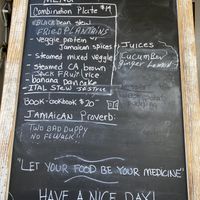 MENU
Combination Plate $19
BLACK bean stew
FRIED PLANTAINS
veggie protein w/
Jamaican spices
steamed mixed veggie
steamed CA brown
JACK FRUIT rice
banana pancake
ITAL STEW
Juices
CUCUMBER
ginger Lemon
BOOK-cookbook $20
JAMAICAN Proverb:
TWO BAD DUPPY
NO FEWALK!!
"LET YOUR FOOD BE YOUR MEDICINE"
HAVE A NICE DAY!